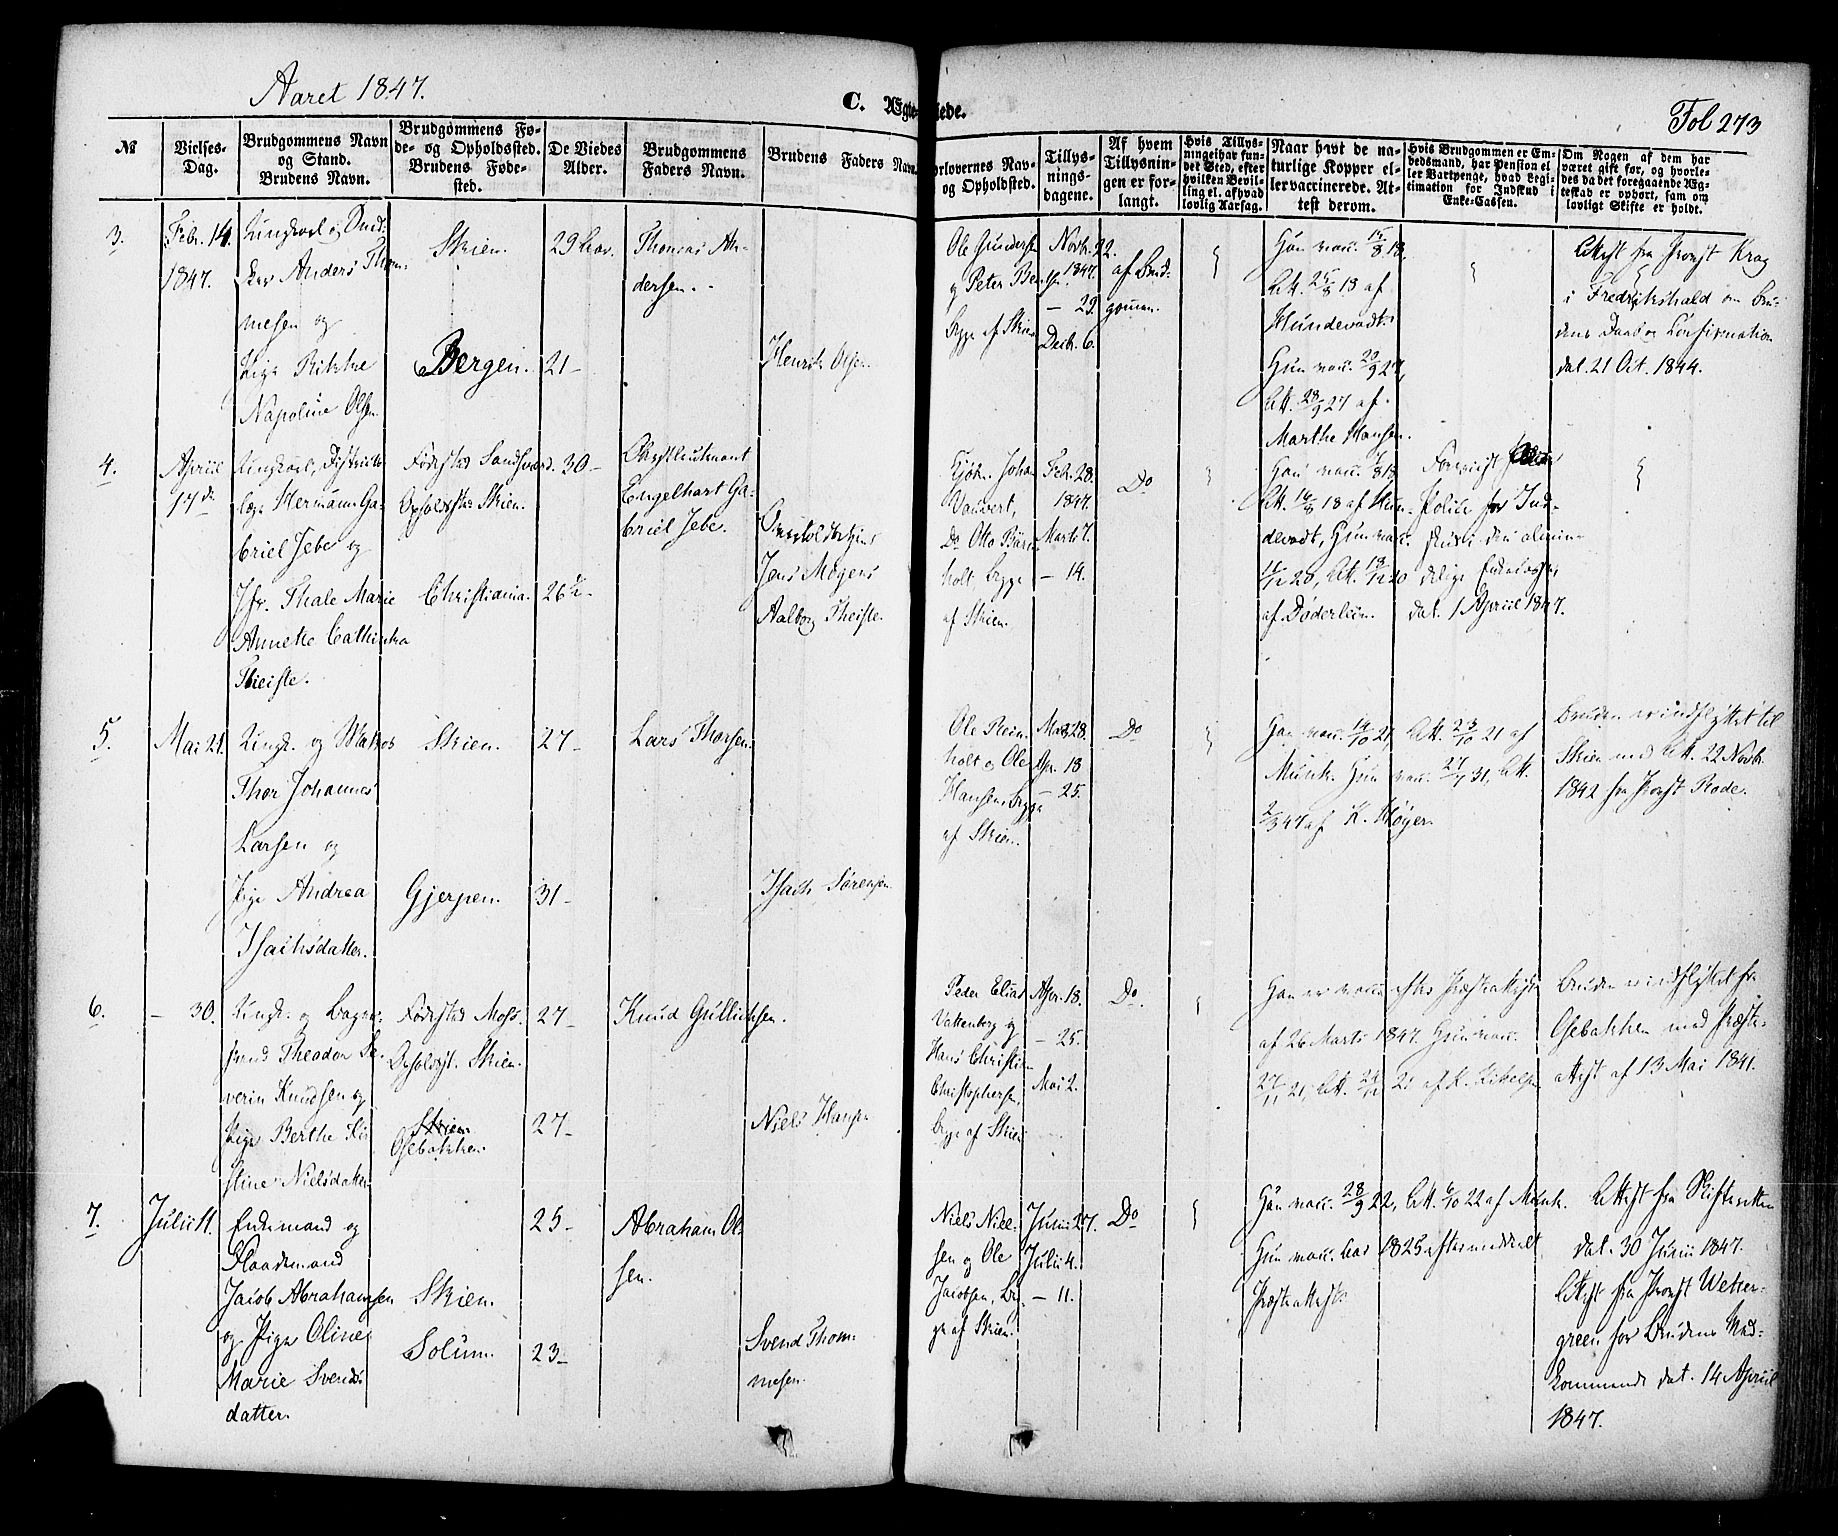 Aaret 1847.
C. Ægte viede.
Fol 273
№
Vielses-
Dag.
Brudgommens Navn
og Stand.
Brudens Navn.
Brudgommens Fø-
de- og Opholdssted.
Brudens Føde-
sted.
De Viedes
Alder.
Brudgommens
Faders Navn.
Brudens Faders Navn.
orlovernes Nav-
og Opholdsted.
Tillys-
nings-
dagene.
Af hvem
Tillysnin-
gen er for-
langt.
Hvis Tillys-
ning ei har fun-
det Sted, efter
hvilken Bevil-
ling el. afhvad
lovlig Aarsag.
Naar havt de na-
turlige Kopper el-
ler vaccinerede. At-
test derom.
Hvis Brudgommen er Em-
bedsmand, har Pension el
ler Vartpenge, hvad Legi-
timation for Indskud i
Enke-Cassen.
Om Nogen af dem har
været gift før, og hvorle-
des da det foregaaende Æg-
teskab er ophørt, sam om
lovligt Skifte er holdt.
3.
Febr. 14.
1847.
Ungkarl og
Anders Thom-
mesen og
Pige Rikke
Napoline Olsen.
Skien.
Bergen.
29
21 –
Thomas An-
dersen.
Henrik Olsen
Ole Gundersen
og Peter
Bygge af Skien
Novbr. 22.
1847.
– 29.
Decb. 6.
af Brud-
gommen.
Han vacc. 15/8 18,
Att. 25/8 18 af
Hundevadt.
Hun vacc. 20/9 27,
Att. 28/9 27 af
Marthe Hansen.
Attest fra Provst Krag
i Fredrikshald om Bru-
dens Daab og Confirmation
dat. 21 Oct. 1844.
4.
Apriil
17de
Ungkarl, Districts-
læge Hermann Ga-
briel Jebe og
Jfr. Thale Marie
Annette Cathinka
Theiste.
Fødested Sandsværd.
Opholdsted Skien.
Christiania.
30 –
26 ½ –
Obrstlieutnant
Engelhart Ga-
briel Jebe.
Jens Mogens
Aalborg Theiste.
Kjøbm. Johan
Do Otto
holt Bygge
af Skien.
Feb. 28.
1847.
Marts 7.
– 14.
Do
Att. 16/8 18 af Hun-
devadt, Hun vacc.
11/12 20, Att. 19/12 20
af Døderlein.
Foreviist
Police for Ind-
skud i den almin-
delige Enkecasse
dat. 1 Apriil 1847.
5.
Mai 21.
Ungk. og Matros
Thor Johannes
Larsen og
Pige Andrea
Isachsdatter.
Skien.
Gjerpen.
27 –
31 –
Lars Thorsen.
Isach Sørensen
Ole Rein-
holt og Ole
Hansen, Bygge
af Skien.
Marts 28.
Apr. 18
– 25.
Do
Han vacc. 14/10 21, Att. 23/10 21 af
Munk. Hun vacc. 27/7 31, Att.
2/3 47 af K. Høyer.
Bruden er indflyttet til
Skien med Att. 22 Novbr.
1842 fra Provst Rode.
6.
– 30.
Ungk. og Bager-
svend Theodor Se-
verin Knudsen og
Pige Berthe Kir-
stine Nielsdatter
Fødested Moss.
Opholdst. Skien.
Skien
Osebakken.
27 –
27 –
Knud Gullichsen.
Niels Hansen
Peder Elias
Valtenberg og
Hans Christian
Christophersen,
Bygge af Skien
Apr. 18.
– 25.
Mai 2.
Do.
Han er vacc. efter Præsteattest
af 26 Marts 1847. Hun vacc.
27/11 21, Att. 24/12 21 af K.
Bruden er indflyttet fra
Osebakken med Præste-
attest af 13 Mai 1841.
7.
Julii 11.
Enkemand og
Flaademand
Jacob Abrahamsen
og Pige Oline
Marie Svends-
datter.
Skien.
Solum.
25 –
23 –
Abraham Ol-
sen.
Svend Thom-
mesen.
Niels Niel-
sen og Ole
Jacobsen, By-
gge af Skien.
Junii 27.
Julii 4.
– 11.
Do
Han vacc. 28/9 22, Att. 6/10 22 af Munk.
Hun vacc. har 1825 efter meddeelt
Præsteattest.
Attest fra Skifteretten
dat. 30 Junii 1847.
Attest fra Provst Wetter-
green for Brudens Ved-
kommende dat. 14 Apriil
1847.